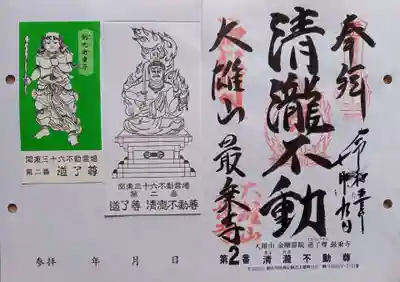 関東三十六不動霊場
第二番 道了尊
関東三十六不動霊場
第二番
道了尊 清瀧不動尊
参拝 年 月 日
奉拝
清瀧不動
大雄山 最乗寺
大雄山
大雄山 金剛壽院 道了尊 最乗寺
第2番 清瀧不動尊